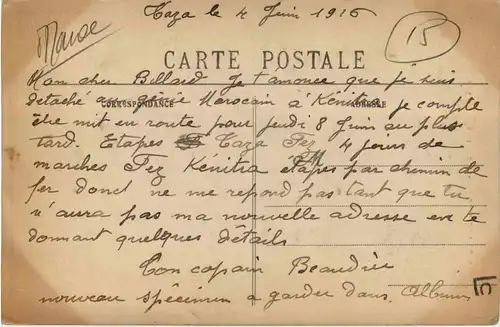 Taza le 4 Juin 1916
Maroc
15
CARTE POSTALE
CORRESPONDANCE
ADRESSE
Mon cher Billard Je t'anonce que je suis
detaché au génie Marocain à Kénitra je compte
être mit en route pour jeudi 8 Juin au plus
tard. Etapes Taza Fez 4 jours de
marches Fez Kénitra étapes par chemin de
fer donc ne me repond pas tant que tu
n'aura pas ma nouvelle adresse en te
donnant quelques détails
Ton copain Beaudrier
nouveau spécimen a garder dans Album